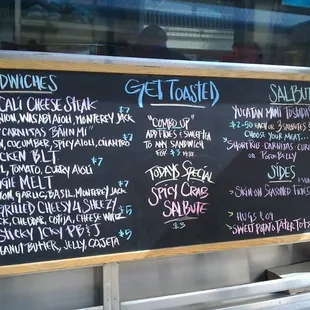 NDWICHES
CALI CHEESE STEAK
ION, WASABI AIOLI, MONTEREY JACK
$7
"CARNITAS BAHN MI"
N, CUCUMBER, SPICY AIOLI, CILANTRO
$7
CKEN BLT
L, TOMATO, CURRY AIOLI
$7
GIE MELT
ON, GARLIC, BASIL, MONTEREY JACK
$7
GRILLED CHEESY 4 SHEEZY
CK, CHEDDAR, COTIJA, CHEESE WHIZ
$5
STICKY ICKY PB & J
EANUT BUTTER, JELLY
$5
GET TOASTED
"COMBO UP"
ADD FRIES & SWEET TEA
TO ANY SANDWICH
FOR $3
TODAYS SPECIAL
SPICY CRAB
SALBUTE
$3
SALBUT
YUCATAN MINI TOSTADAS
$2.50 EACH OR 3 SALBUTES
CHOOSE YOUR MEAT...
CARNITAS
OR
SIDES
SKIN-ON SEASONED FRIES
HUGS
SWEET POTATO TATER TOTS